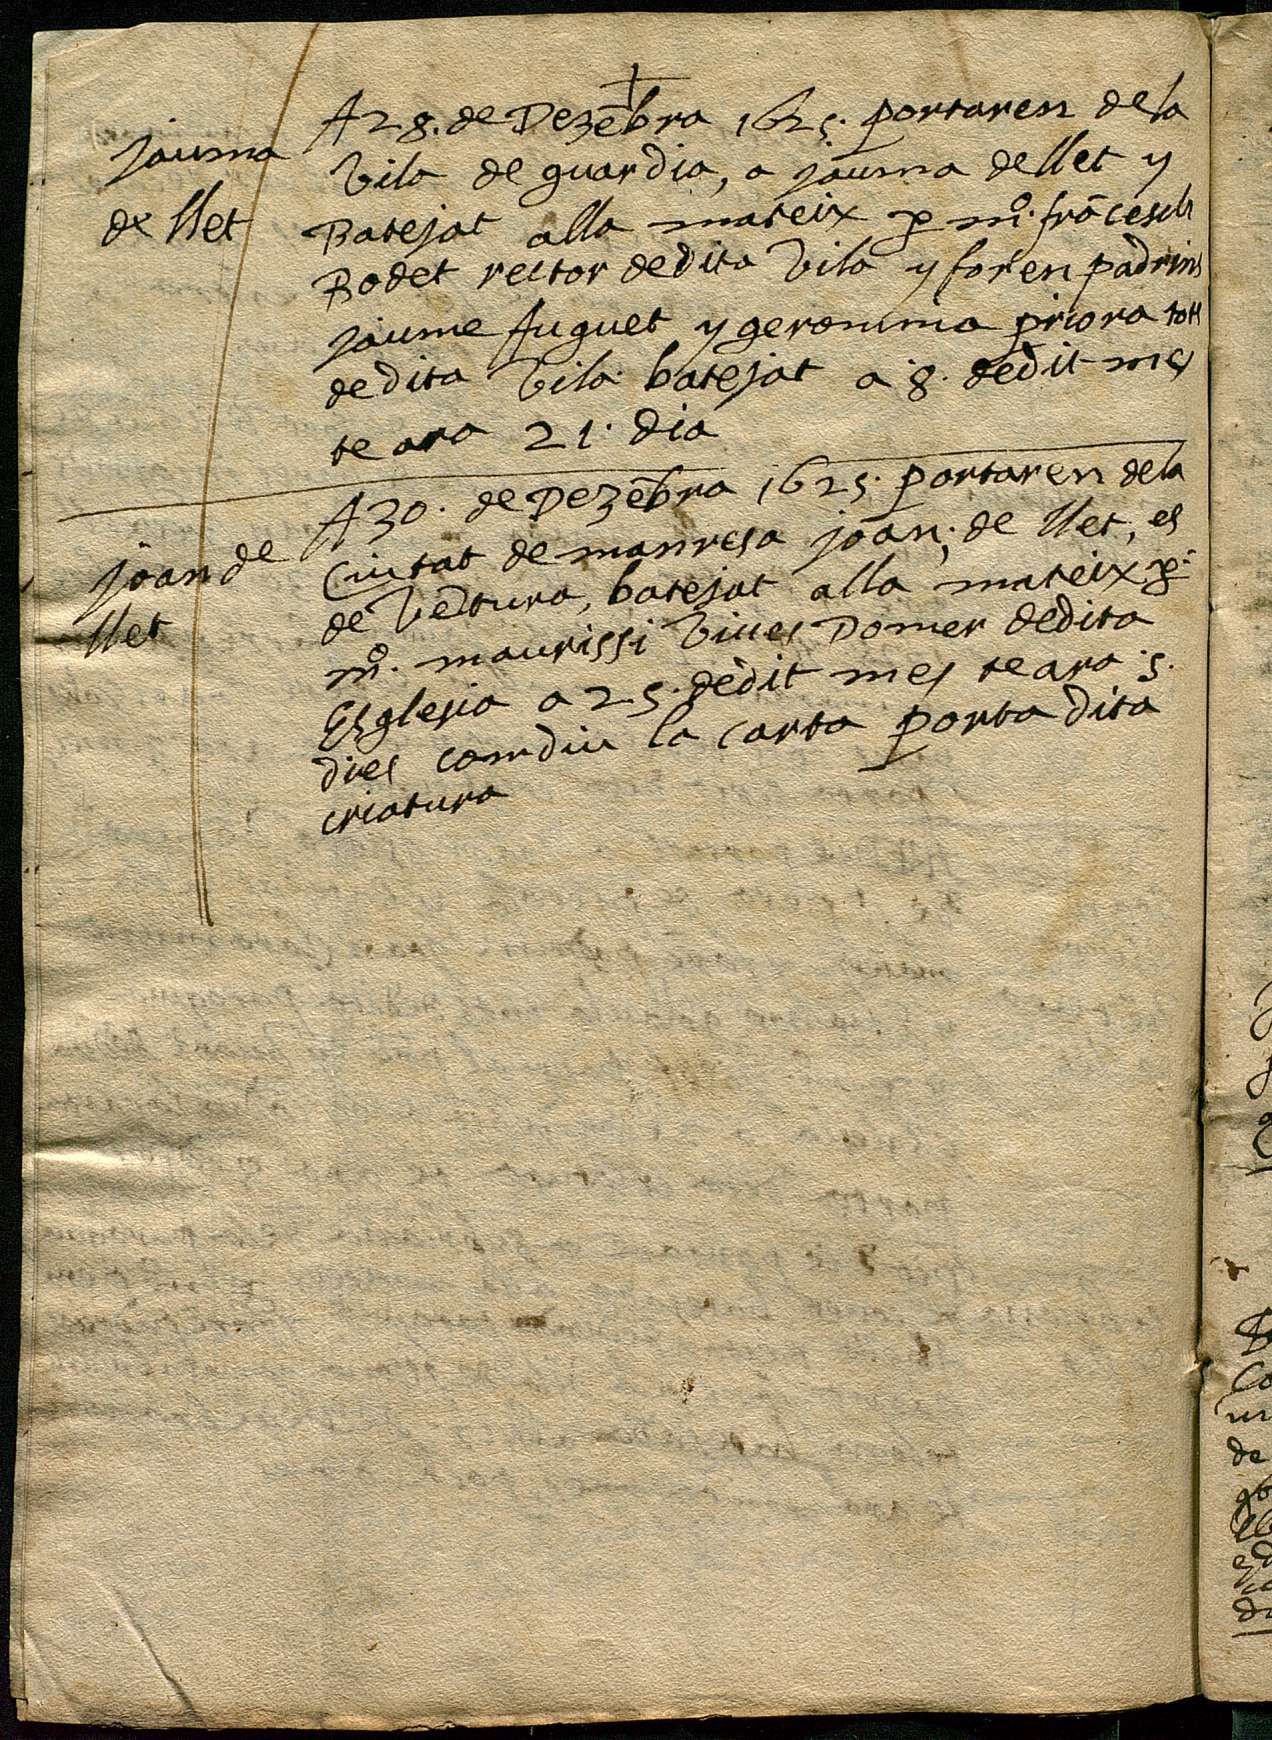 Jauma
de llet
A 28. de Dezẽbra 1625. portaren de la
Vila de guardia, a jauma de llet y
Batejat alla mateix p mº. frãcesch
Bodet rector de dita Vila y foren padrins
jaume Auguet y geronima priora tots
de dita Vila batejat a 8. de dit mes
te ara 21. dia
joan de
llet
A 30. de Dezẽbra 1625. portaren de la
Ciutat de manresa joan, de llet, es
de Vẽtura, batejat alla mateix p.
mº. maurissi Viues Domer de dita
Esglesia a 25. de dit mes te ara 5.
dies com diu la carta porta dita
criatura